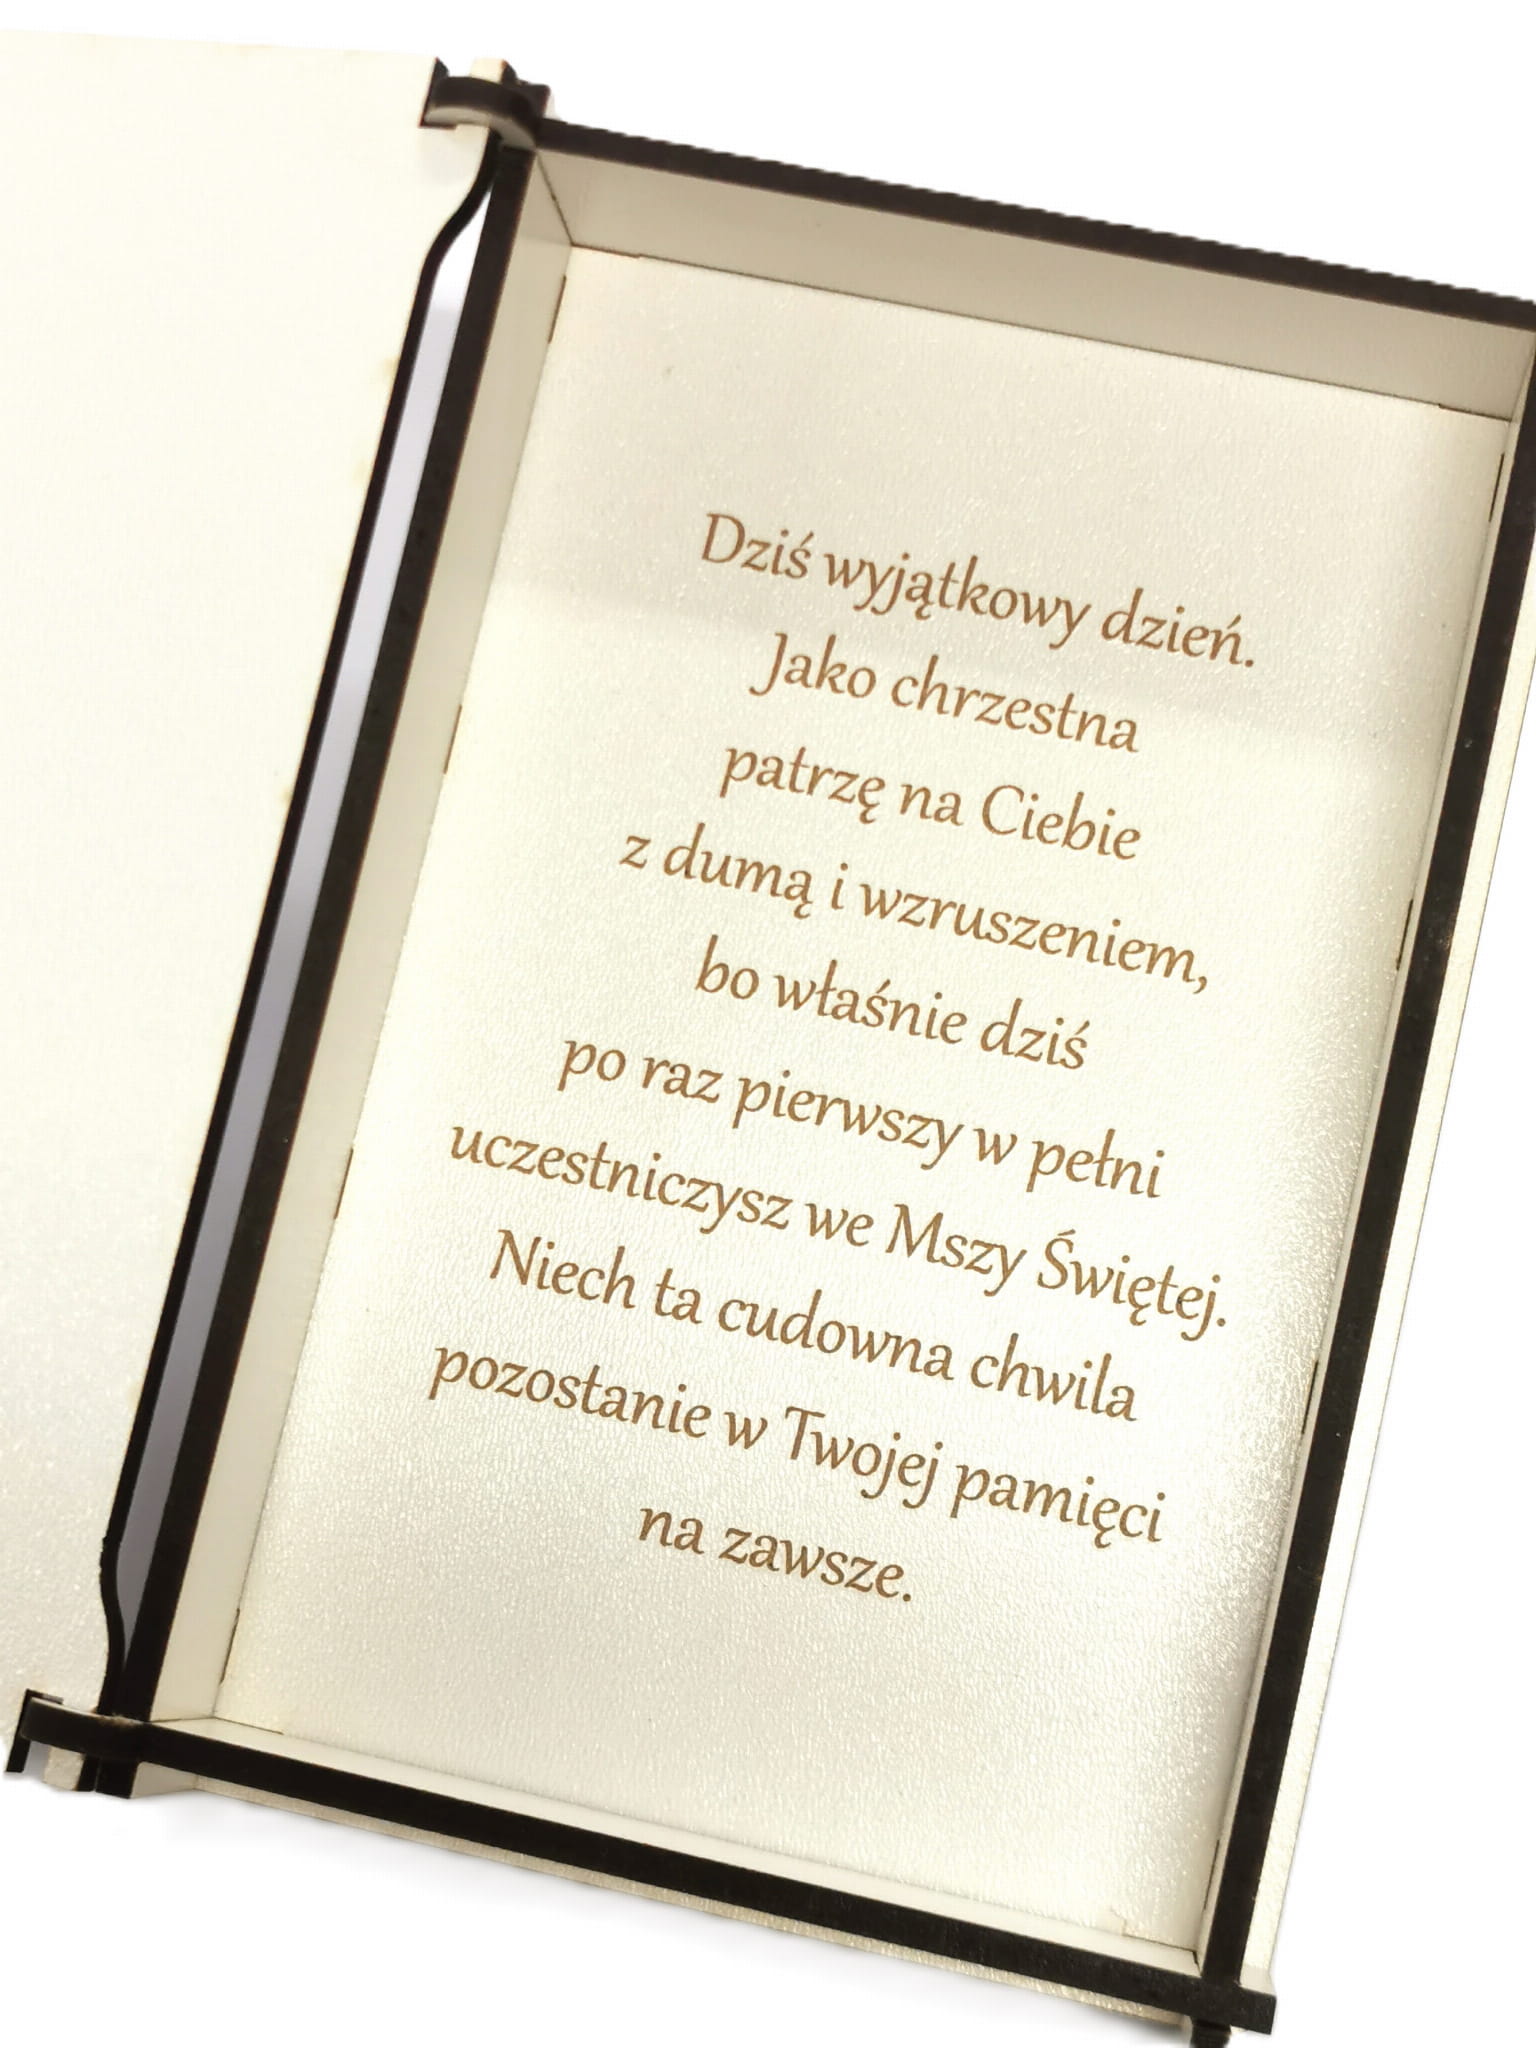 Dziś wyjątkowy dzień.
Jako chrzestna
patrzę na Ciebie
z dumą i wzruszeniem,
bo właśnie dziś
po raz pierwszy w pełni
uczestniczysz we Mszy Świętej.
Niech ta cudowna chwila
pozostanie w Twojej pamięci
na zawsze.